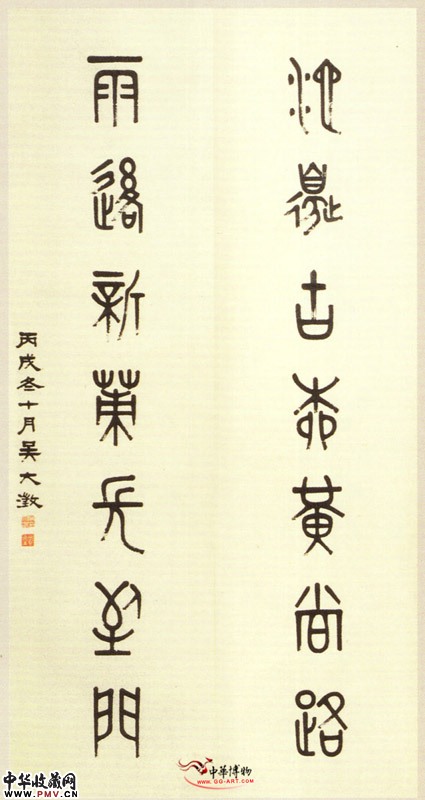 池邊古黃尚路
雨後新長到門
丙戌冬十月吳大澂
中華博物
WWW.GG-ART.COM
中华收藏网
www.PMV.CN